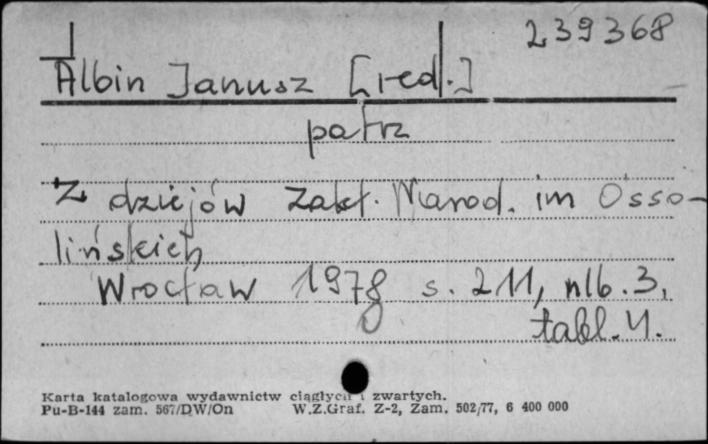 239368
Albin Janusz [red.]
patrz
Z dziejów Zakł. Narod. im Osso-
lińskich
Wrocław 1978 s. 211, nlb. 3,
tabl. 4.
Karta katalogowa wydawnictw ciągłych i zwartych.
Pu-B-144 zam. 567/DW/On W.Z.Graf. Z-2, Zam. 502/77, 6 400 000